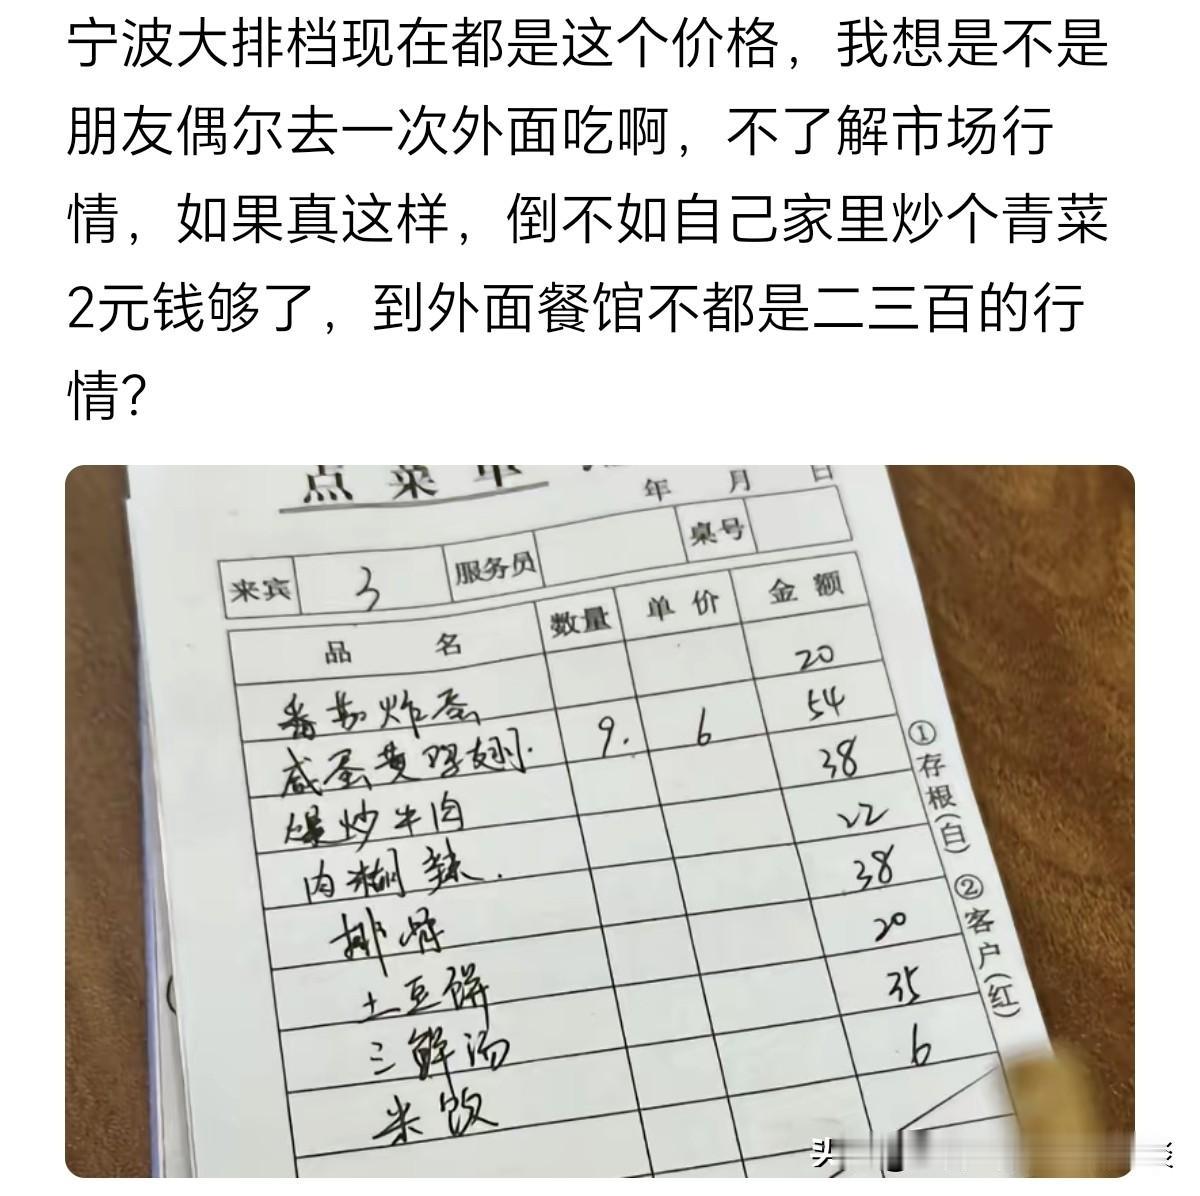 宁波大排档现在都是这个价格，我想是不是
朋友偶尔去一次外面吃啊，不了解市场行
情，如果真这样，倒不如自己家里炒个青菜
2元钱够了，到外面餐馆不都是二三百的行
情？
点菜单
年 月 日
来宾 3 服务员 桌号
品 名 数量 单价 金额
番茄炸蛋 20
咸蛋黄鸡翅. 9. 6 54
爆炒牛肉 38
肉糊辣. 22
排骨 38
土豆饼 20
三鲜汤 35
米饭 6
①存根(白) ②客户(红)